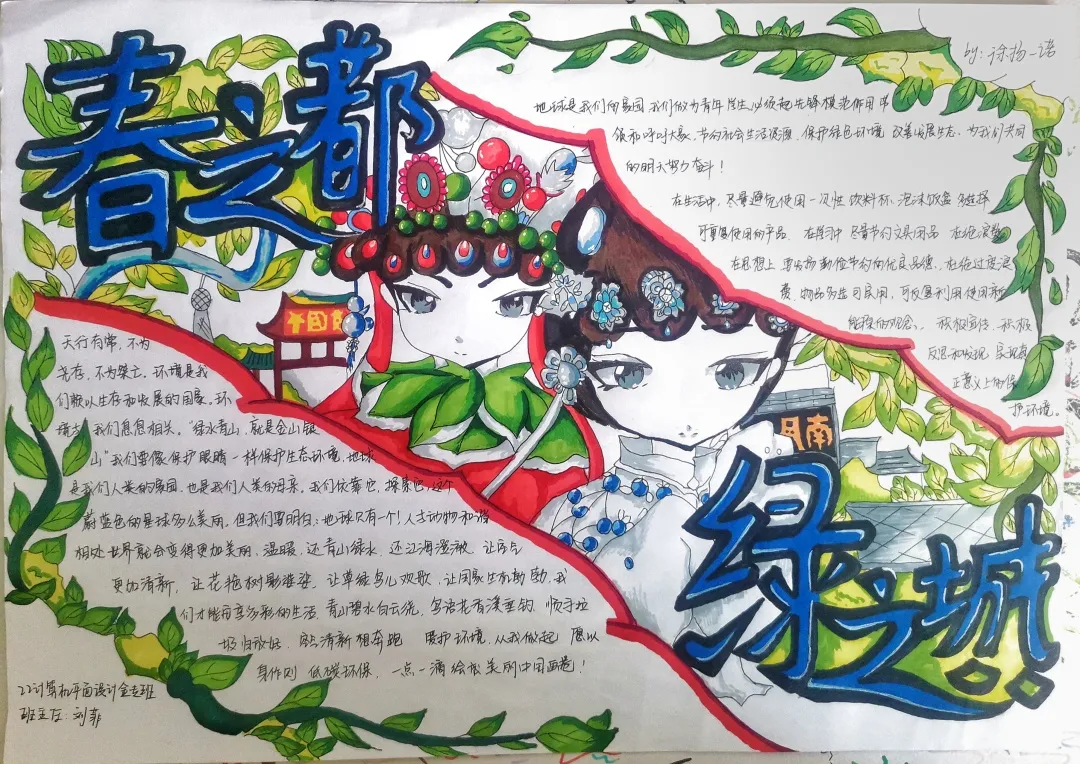 春之都
by:徐扬一诺
地球是我们的家园 我们做为青年学生,必须起先锋模范作用
和呼吁大家,节约社会生活资源,保护绿色环境,改善发展生态,为我们共同
的明天努力奋斗!
在生活中,尽量避免使用一次性饮料杯、泡沫饭盒 多选择
可重复使用的产品. 在学习中 尽量节约文具用品 杜绝浪费
在思想上 要发扬勤俭节约的优良品德, 杜绝过度浪
费、物品多造可民用,可反复利用使用新
能源的观念, 积极宣传、积极
反思和发现
正意义上的保
护环境。
天行有常,不为
尧存,不为桀亡。环境是我
们赖以生存和发展的国家。环
境与我们息息相关。“绿水青山,就是金山银
山”我们要像保护眼睛一样保护生态环境,地球
是我们人类的家园,也是我们人类的母亲。我们依靠它,探索它,这个
蔚蓝色的星球多么美丽,但我们要明白:地球只有一个!人与动物和谐
相处 世界就会变得更加美丽,温暖,还青山绿水,还江海澄澈,让空气
更加清新, 让花艳树影婆娑, 让草绿鸟儿欢歌,让国家生机勃勃,我
们才能可享多彩的生活. 青山碧水白云绕, 鸟语花香溪垂钓, 顺手垃
圾归收好, 空气清新相奔跑 爱护环境,从我做起 愿以
身作则 低碳环保, 一点一滴绘就美丽中国画卷!
中国
月南
绿之城
22计算机平面设计金走班
班主任:刘菲